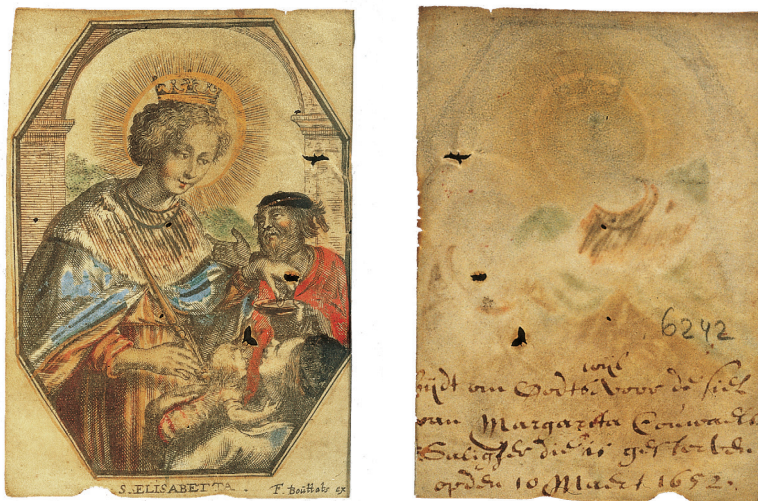 S. ELISABETTA. F. Bouttats ex
6242
wijl
Bijdt om Godts voor de siel
van Margareta Couwaels
Saligher die is gestorven
opden 10 Maert 1652.